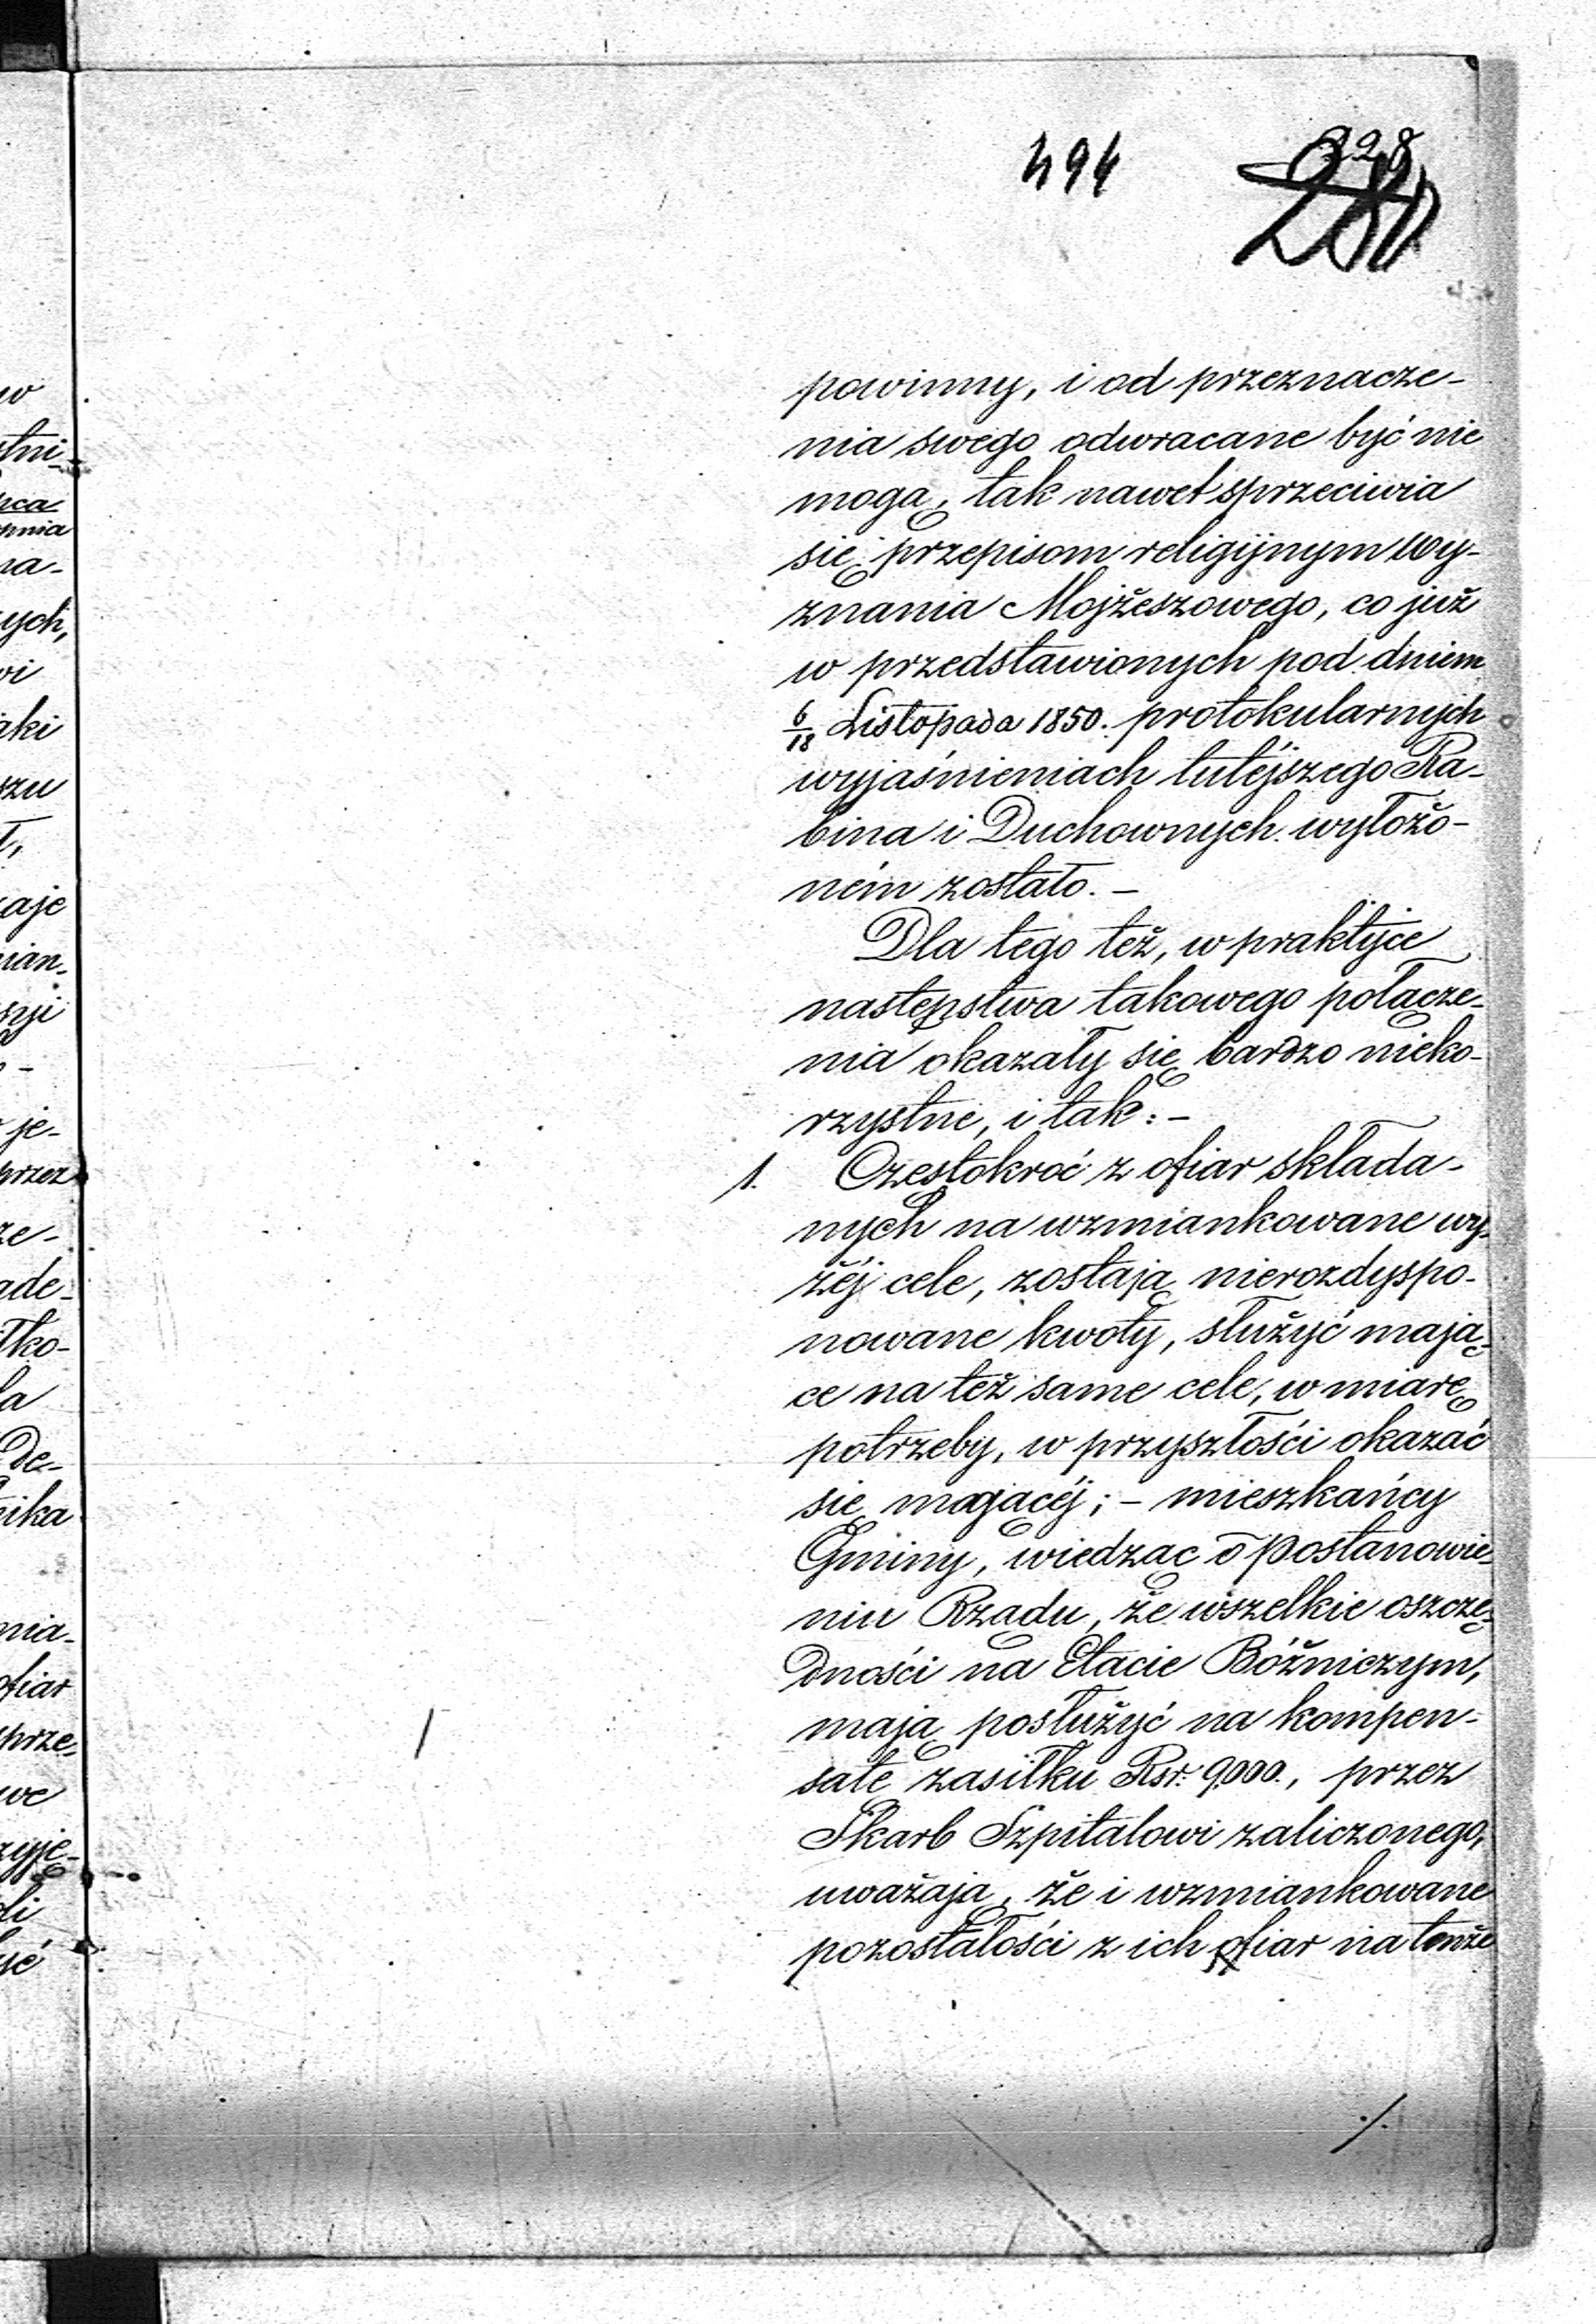 494
228
powinny, i od przeznacze-
nia swego odwracane być nie
mogą, tak nawet sprzeciwia
się przepisom religijnym wy-
znania Mojżeszowego, co już
w przedstawionych pod dniem
6/18 Listopada 1850. protokularnych
wyjaśnieniach tutéjszego Ra-
bina i Duchownych wyłożo-
ném zostało. -
Dla tego też, w praktyce
następstwa takowego połącze-
nia okazały się bardzo nieko-
rzystne, i tak: -
1. Częstokroć z ofiar składa-
nych na wzmiankowane wy-
żéj cele, zostają nierozdyspo-
nowane kwoty, służyć mają-
ce na też same cele, w miarę
potrzeby, w przyszłości okazać
się mogącéj; - mieszkańcy
Gminy, wiedząc o postanowie-
niu Rządu, że wszelkie oszczę-
dności na Etacie Bóżniczym,
mają posłużyć na kompen-
satę zasiłku Rsr. 9,000., przez
Skarb Szpitalowi zaliczonego,
uważają, że i wzmiankowane
pozostałości z ich ofiar na tenże
./.
w
stni-
pca
pnia
na-
ych,
wi
aki
szu
ł,
kaje
mian-
syi
-
je-
przez
ze-
ade-
łko-
la
De-
nika
nia-
ofiar
sprze-
we
zyję-
li
ść